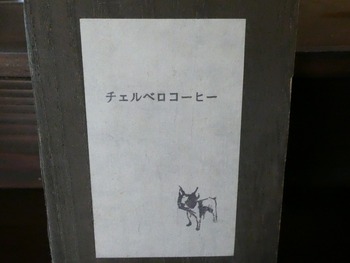 チェルベロコーヒー